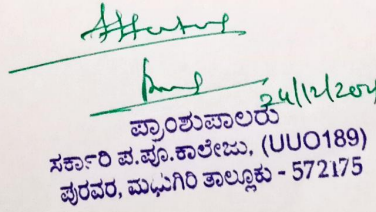 24/12/202
ಪ್ರಾಂಶುಪಾಲರು
ಸರ್ಕಾರಿ ಪ.ಪೂ.ಕಾಲೇಜು, (UUO189)
ಪುರವರ, ಮಧುಗಿರಿ ತಾಲ್ಲೂಕು - 572175